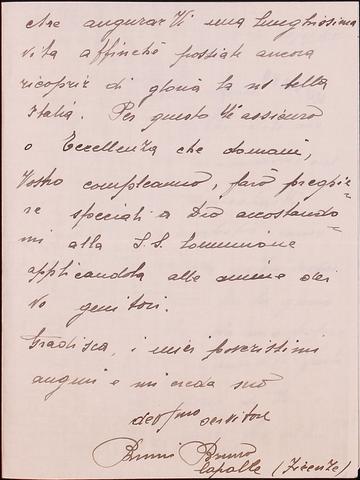 che augurar Vi una lunghissima
vita affinché possiate ancora
ricoprir di gloria la ns bella
Italia. Per questo Vi assicuro
o Eccellenza che domani,
Vostro compleanno, farò preghie=
re speciali a Dio accostando=
mi alla S.S. Comunione
applicandola alle anime dei
Vo genitori.
Gradisca, i miei poverissimi
auguri e mi creda suo
dev/mo servitore
Bruni Bruno
Capalle (Firenze)